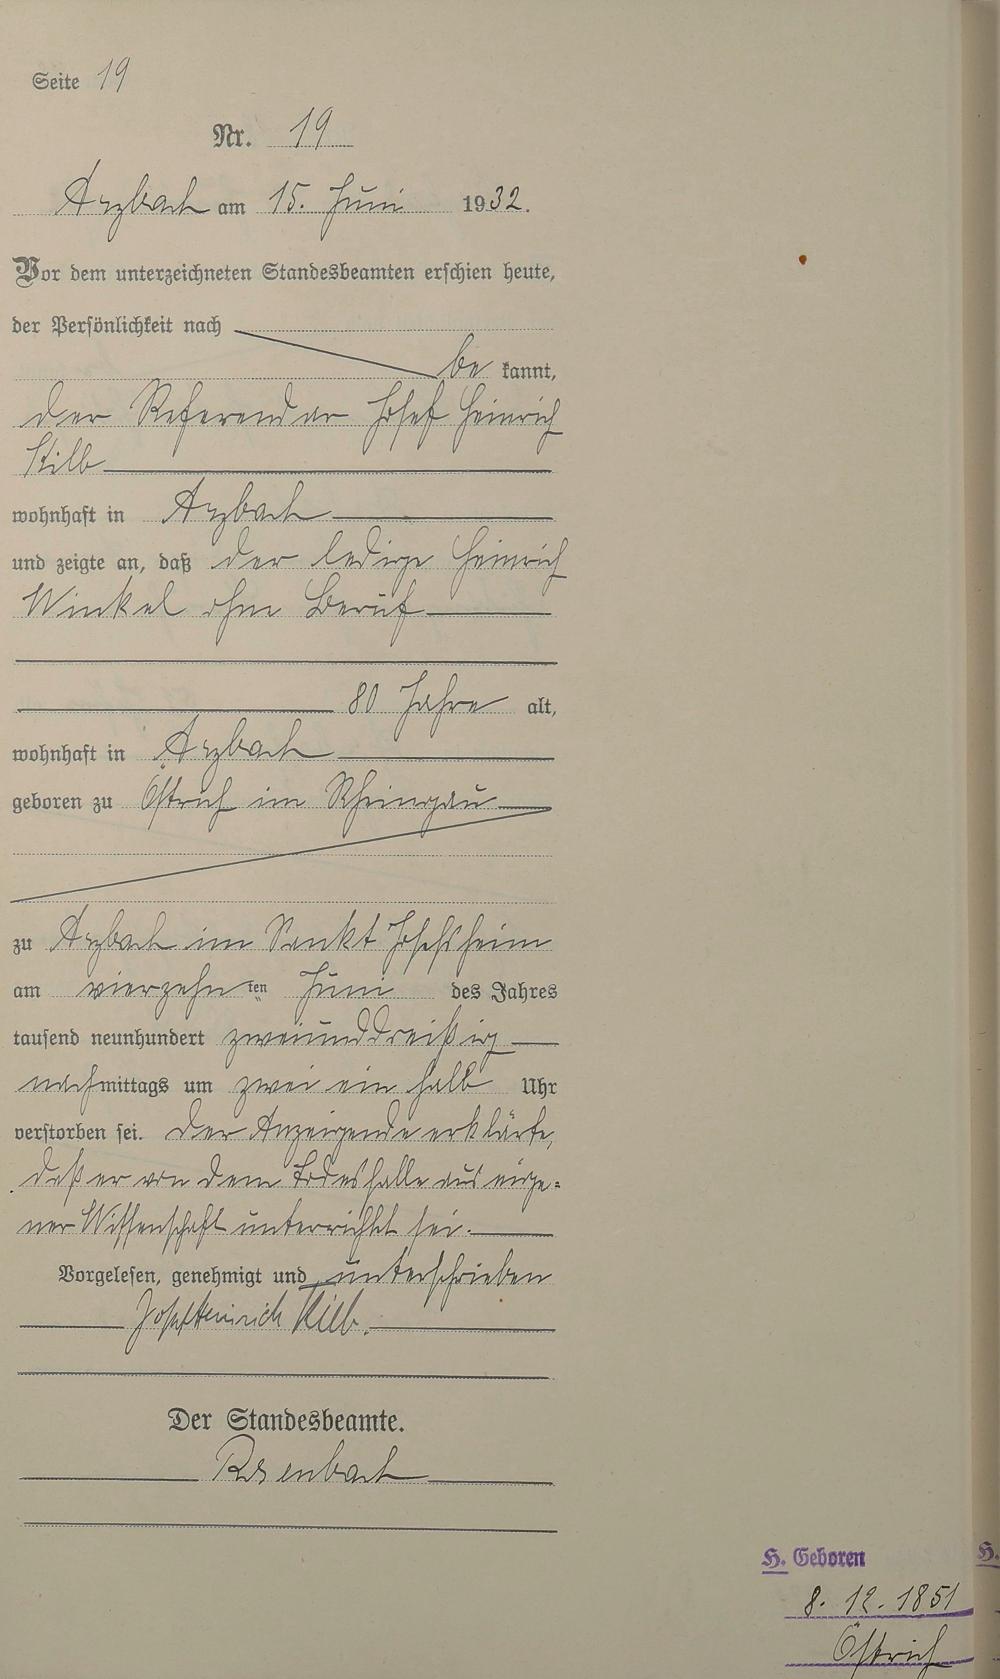 Seite 19
Nr. 19
Arzbach am 15. Juni 1932.
Vor dem unterzeichneten Standesbeamten erschien heute,
der Persönlichkeit nach
be kannt,
der Referendar Josef Heinrich
Kilb
wohnhaft in Arzbach
und zeigte an, daß der ledige Heinrich
Winkel ohne Beruf
80 Jahre alt,
wohnhaft in Arzbach
geboren zu Östrich im Rheingau
zu Arzbach im Sankt Josefsheim
am vierzehn ten Juni des Jahres
tausend neunhundert zweiunddreißig
nachmittags um zwei ein halb Uhr
verstorben sei. Der Anzeigende erklärte,
daß er von dem Todesfalle aus eige-
ner Wissenschaft unterrichtet sei.
Vorgelesen, genehmigt und unterschrieben
Josef Heinrich Kilb.
Der Standesbeamte.
Rosenbach
H. Geboren
8. 12. 1851
Östrich
H.